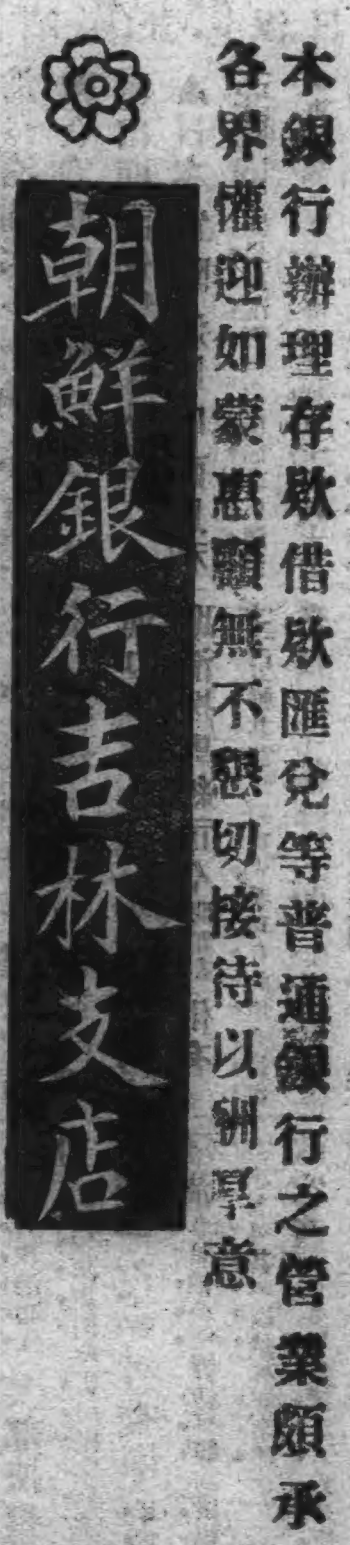 本銀行辦理存欵借欵匯兌等普通銀行之營業頗承
各界懽迎如蒙惠顧無不懇切接待以酬厚意
朝鮮銀行吉林支店